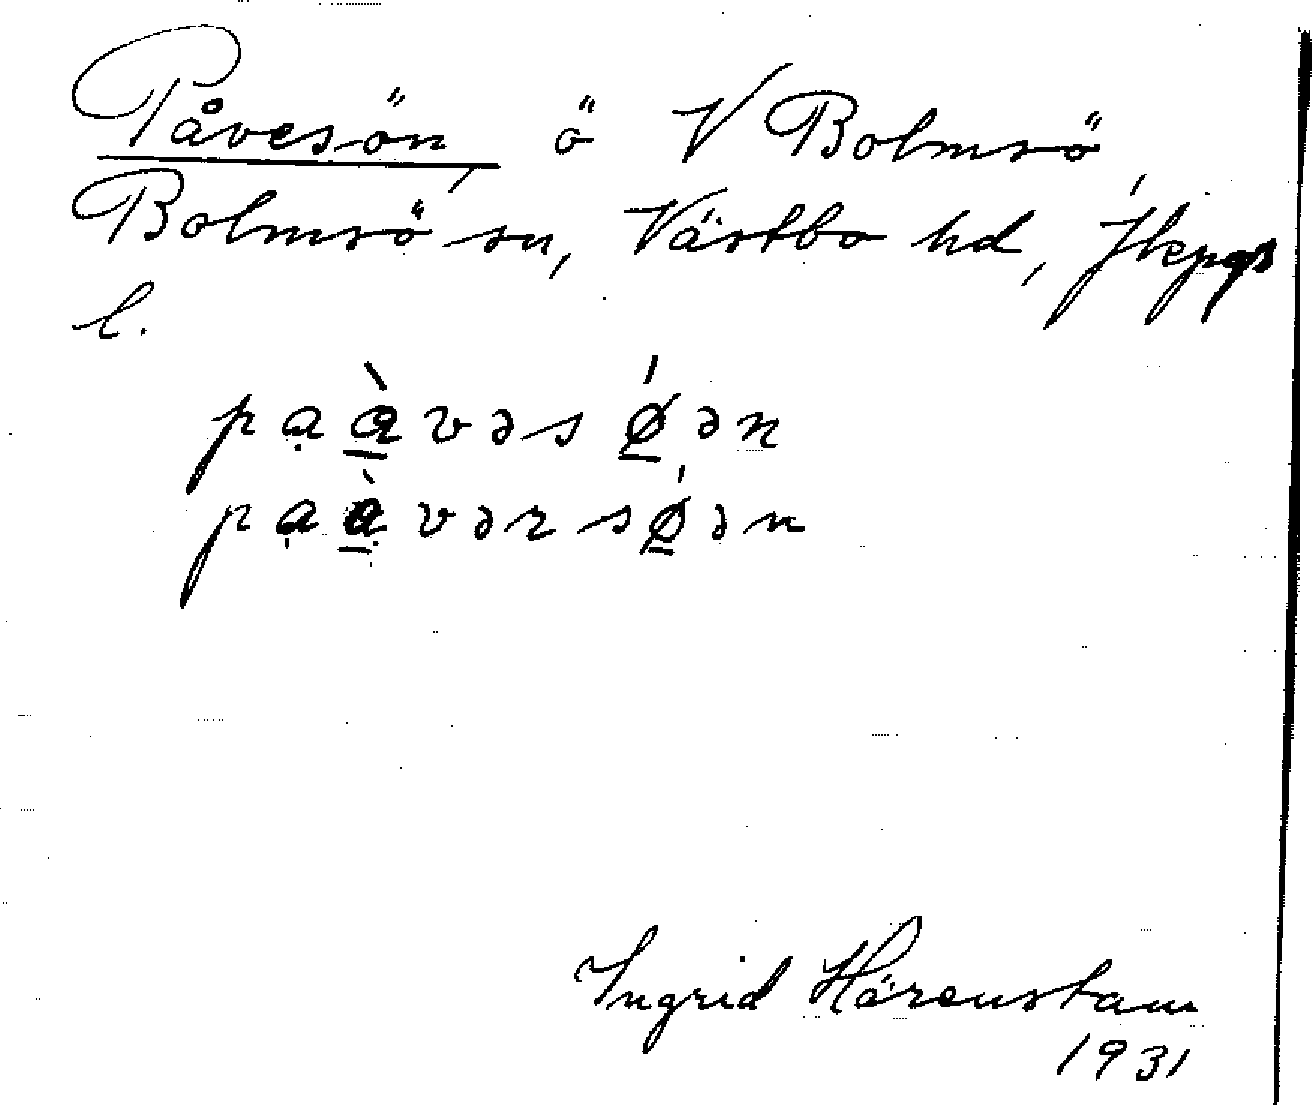 Påvesön, ö V Bolmsö,
Bolmsö sn, Västbo hd, Jkpgs
l.
pạà̱vəsǿ̱ən
pạà̱vərsǿ̱ən
Ingrid Härenstam
1931